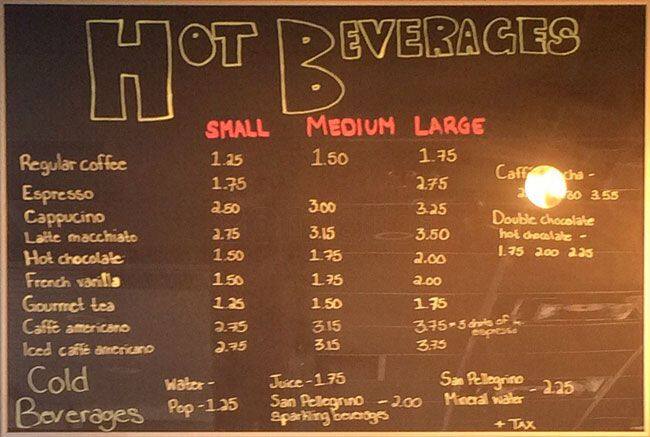 HOT BEVERAGES
SMALL MEDIUM LARGE
Regular coffee 1.25 1.50 1.75
Espresso 1.75 2.75
Cappucino 2.50 3.00 3.25
Latte macchiato 2.75 3.15 3.50
Hot chocolate 1.50 1.75 2.00
French vanilla 1.50 1.75 2.00
Gourmet tea 1.25 1.50 1.75
Caffè americano 2.75 3.15 3.75 = 3 shots of espresso
Iced caffè americano 2.75 3.15 3.75
3.55
Double chocolate
hot chocolate -
1.75 2.00 2.25
Cold Beverages
Water -
Pop - 1.25
Juice - 1.75
San Pellegrino - 2.00
sparkling beverages
San Pellegrino
Mineral water - 2.25
+ TAX